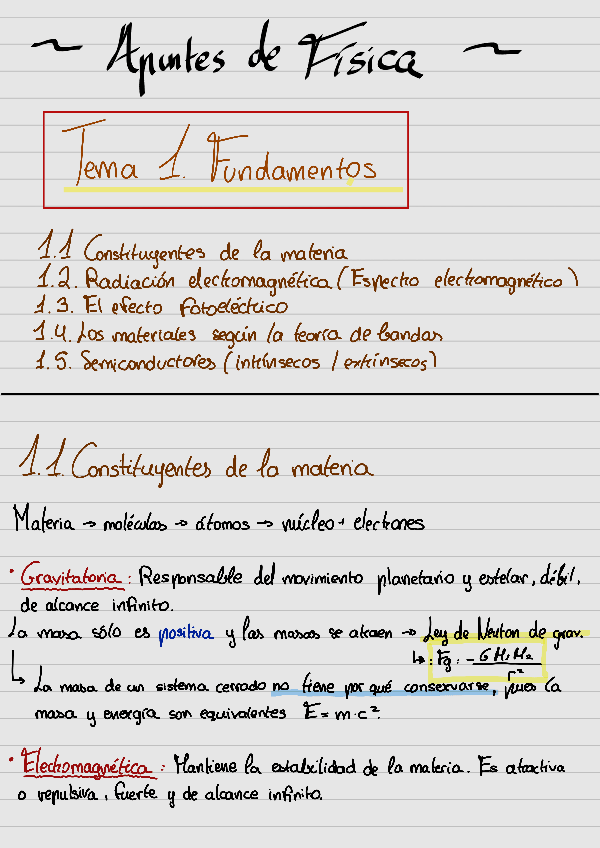 ~ Apuntes de Física ~
Tema 1. Fundamentos
1.1 Constituyentes de la materia
1.2. Radiación electromagnética (Espectro electromagnético)
1.3. El efecto fotoeléctrico
1.4. Los materiales según la teoría de bandas
1.5. Semiconductores (intrínsecos / extrínsecos)
1.1. Constituyentes de la materia
Materia → moléculas → átomos → núcleo + electrones
· Gravitatoria : Responsable del movimiento planetario y estelar, débil,
de alcance infinito.
La masa sólo es positiva y las masas se atraen → Ley de Newton de grav.
↳ : Fg : - G M₁ M₂ / r²
↳ La masa de un sistema cerrado no tiene por qué conservarse, pues la
masa y energía son equivalentes E = m·c².
· Electromagnética : Mantiene la estabilidad de la materia. Es atractiva
o repulsiva, fuerte y de alcance infinito.